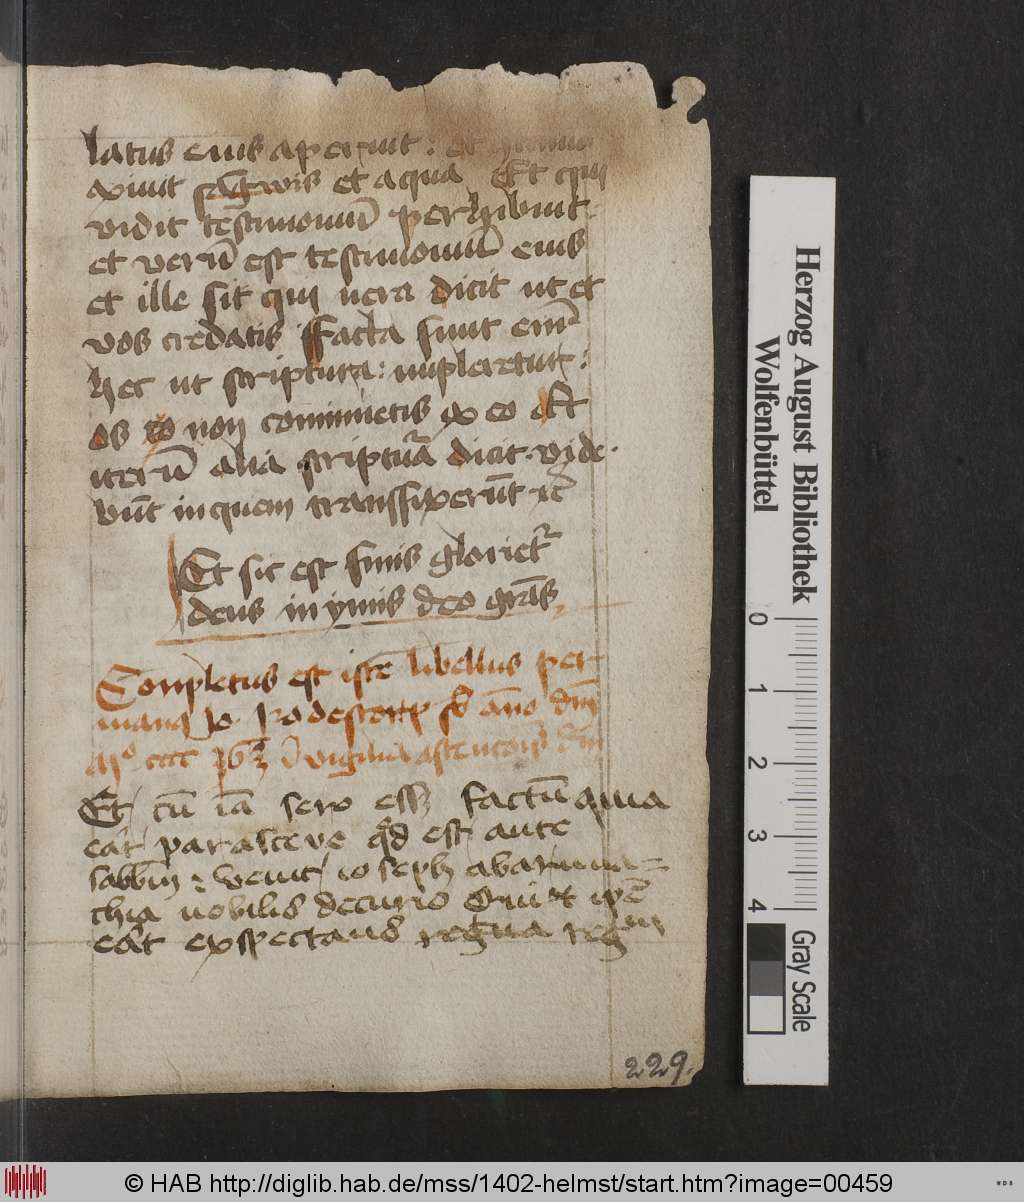 latus eius aperuit : et
exiuit sagwis et aqua Et qui
vidit testimoniū perhibuit
et verū est testimoniū eius
et ille sit qui uera dicit ut et
vos credatis ffacta sunt em̄
hec ut scriptura : impleretur :
os non cōminuetis ex eo Et
iterū alia scriptura dicit . vide
būt in quem transfixerūt
Et sic est finis gloriet
deus in ymis deo grās
Conpletus est iste libellus per
manꝰ Jo. anno dm̄
Mo cccc vigilia dm̄
Et cū iā sero factū quia
erat parasceue qd est ante
sabbm̄ : venit ioseph abarima-
thia nobilis decurio Qui et ipē
erat exspectans
229.
Herzog August Bibliothek
Wolfenbüttel
0 1 2 3 4
Gray Scale
© HAB http://diglib.hab.de/mss/1402-helmst/start.htm?image=00459